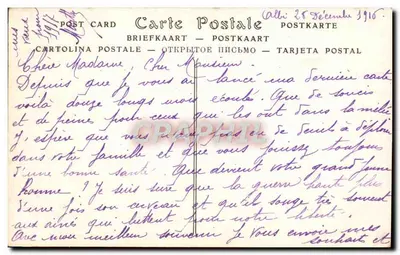 POST CARD Carte Postale POSTKARTE
BRIEFKAART — POSTKAART
CARTOLINA POSTALE — ОТКРЫТОЕ ПИСЬМО — TARJETA POSTAL
Albi 28 Décembre 1916
mes vœux pour 1917
Chère Madame, Cher Monsieur.
Depuis que je vous ai lancé ma dernière carte
voilà douze longs mois écoulés. Que de soucis
et de peine pour ceux qui les ont dans la mêlée
J'espère que vous de deuils à déplorer
dans votre famille et que vous jouissez toujours
d'une bonne santé. Que devient votre grand jeune
homme ? Je suis sûre que la guerre hante plus
d'une fois son cerveau et qu'il songe très souvent
aux aînés qui luttent pour notre liberté.
Avec mon meilleur souvenir je vous envoie mes
souhaits et